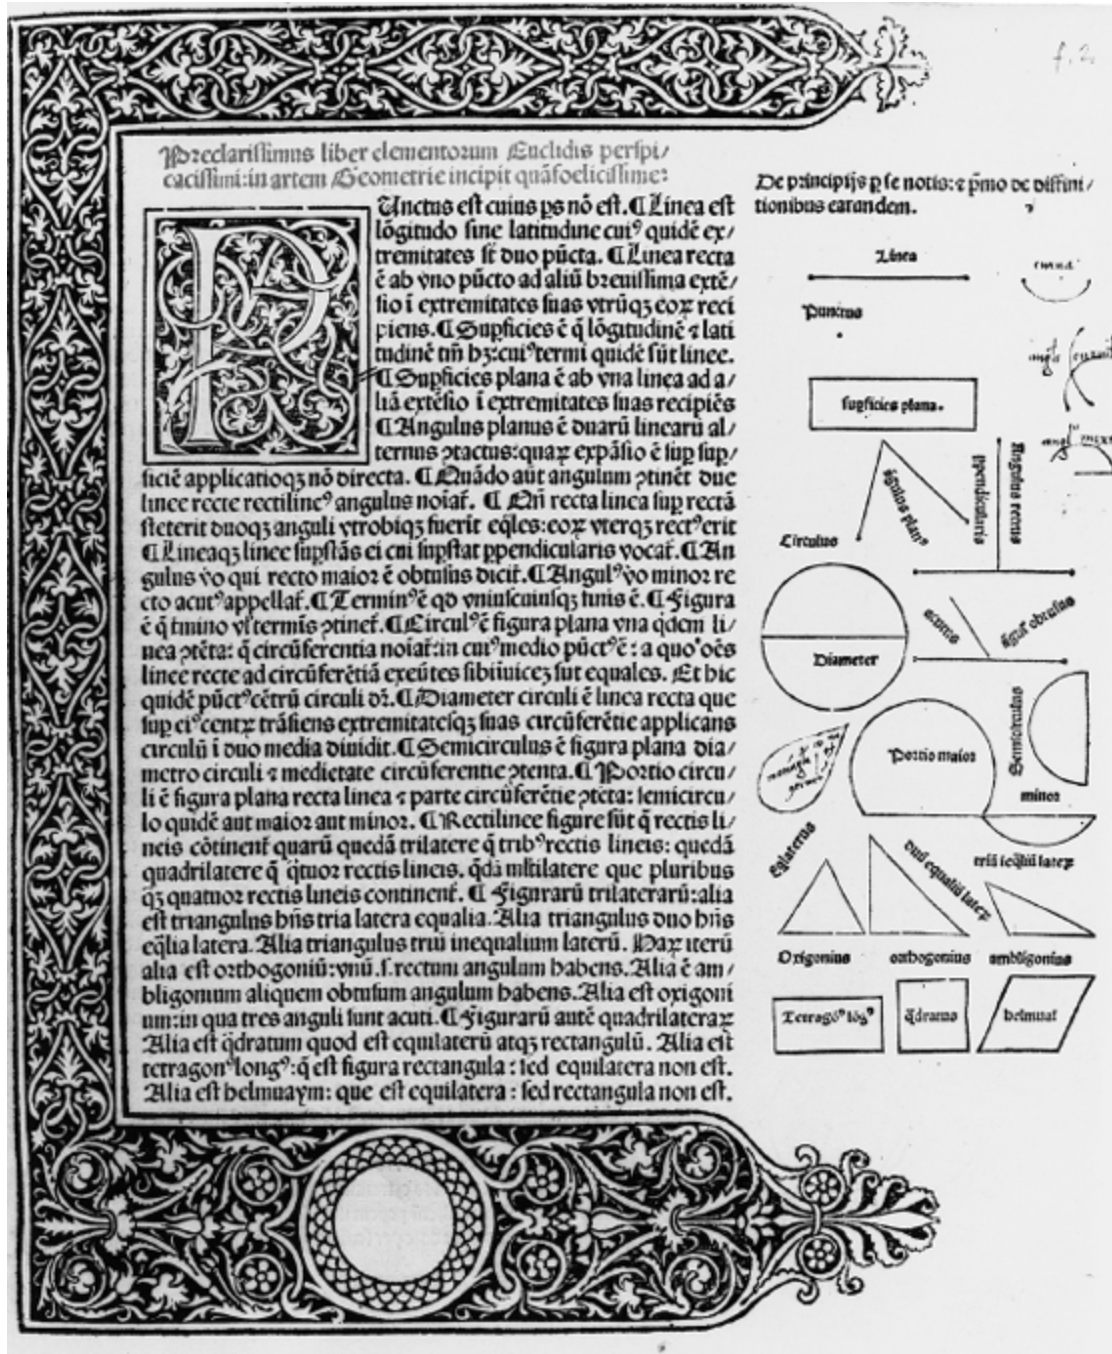 f.2.
Preclarissimus liber elementorum Euclidis perspi/
cacissimi: in artem Geometrie incipit quãfoelicissime:
PUnctus est cuius ps nõ est. ¶ Linea est
lõgitudo sine latitudine cuiꝰ quidẽ ex/
tremitates sũt duo pũcta. ¶ Linea recta
ẽ ab vno pũcto ad aliũ breuissima extẽ/
sio ĩ extremitates suas vtrũqꝫ eoꝝ reci
piens. ¶ Supficies ẽ q̃ lõgitudinẽ ⁊ lati
tudinẽ tm̃ hꝫ: cuiꝰ termi quidẽ sũt linee.
¶ Supficies plana ẽ ab vna linea ad a/
liã extẽsio ĩ extremitates suas recipiẽs
¶ Angulus planus ẽ duarũ linearũ al/
ternus ꝯtactus: quaꝝ expãsio ẽ sup sup/
ficiẽ applicatioqꝫ nõ directa. ¶ Quãdo aũt angulum ꝯtinẽt due
linee recte rectilineꝰ angulus noiat̃. ¶ Qñ recta linea sup rectã
steterit duoqꝫ anguli vtrobiqꝫ fuerĩt eq̃les: eoꝝ vterqꝫ rectꝰ erit
¶ Lineaqꝫ linee supstãs ei cui supstat ppendicularis vocat̃. ¶ An
gulus ṽo qui recto maior ẽ obtusus dicit̃. ¶ Angulꝰ ṽo minor re
cto acutꝰ appellat̃. ¶ Terminꝰ ẽ qd vniuscuiusqꝫ finis ẽ. ¶ Figura
ẽ q̃ tmino vl̃ termĩs ꝯtinet̃. ¶ Circulꝰ ẽ figura plana vna q̃dem li/
nea ꝯtẽta: q̃ circũferentia noiat̃: in cuiꝰ medio pũctꝰ ẽ: a quo oẽs
linee recte ad circũferẽtiã exeũtes sibiĩuicẽ sũt equales. Et hic
quidẽ pũctꝰ cẽtrũ circuli dr̃. ¶ Diameter circuli ẽ linea recta que
sup eiꝰ centꝝ trãsiens extremitatesqꝫ suas circũferẽtie applicans
circulũ ĩ duo media diuidit. ¶ Semicirculus ẽ figura plana dia/
metro circuli ⁊ medietate circũferentie ꝯtenta. ¶ Portio circu/
li ẽ figura plana recta linea ⁊ parte circũferẽtie ꝯtẽta: semicircu/
lo quidẽ aut maior aut minor. ¶ Rectilinee figure sũt q̃ rectis li/
neis cõtinent̃ quarũ quedã trilatere q̃ tribꝰ rectis lineis: quedã
quadrilatere q̃ q̃tuor rectis lineis. q̃dã mĩtilatere que pluribus
qꝫ quatuor rectis lineis continent̃. ¶ Figurarũ trilaterarũ: alia
est triangulus hñs tria latera equalia. Alia triangulus duo hñs
eq̃lia latera. Alia triangulus triũ inequalium laterũ. Haꝝ iterũ
alia est orthogoniũ: vnũ .s. rectum angulum habens. Alia ẽ am/
bligonium aliquem obtusum angulum habens. Alia est oxigoni
um: in qua tres anguli sunt acuti. ¶ Figurarũ autẽ quadrilateraꝝ
Alia est q̃dratum quod est equilaterũ atqꝫ rectangulũ. Alia est
tetragonꝰ longꝰ: q̃ est figura rectangula: sed equilatera non est.
Alia est helmuaym: que est equilatera: sed rectangula non est.
De principijs p se notis: ⁊ pmo de diffini/
tionibus earandem.
Linea
curua
Punctus
supficies plana.
ãgulus planꝰ
ppendicularis
Angulus rectus
Circulus
Diameter
acutus
ãgulꝰ obtusus
Portio maior
Semicirculus
minor
Eq̃laterus
duũ equaliũ lateꝝ
triũ ieq̃liũ lateꝝ
Oxigonius
orthogonius
ambligonius
Tetragõꝰ lõgꝰ
q̃dratus
helmuai